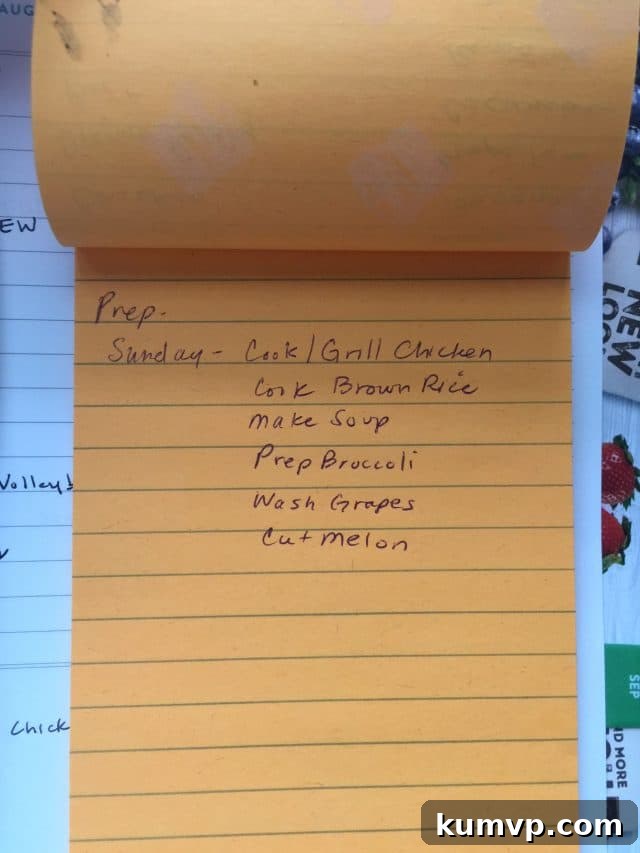 AUG
EW
Prep.
Sunday - Cook/Grill Chicken
Cook Brown Rice
Make Soup
Prep Broccoli
Wash Grapes
Cut Melon
Volley
Chick
NEW
LOO
SEP
ND MORE
kumvp.com